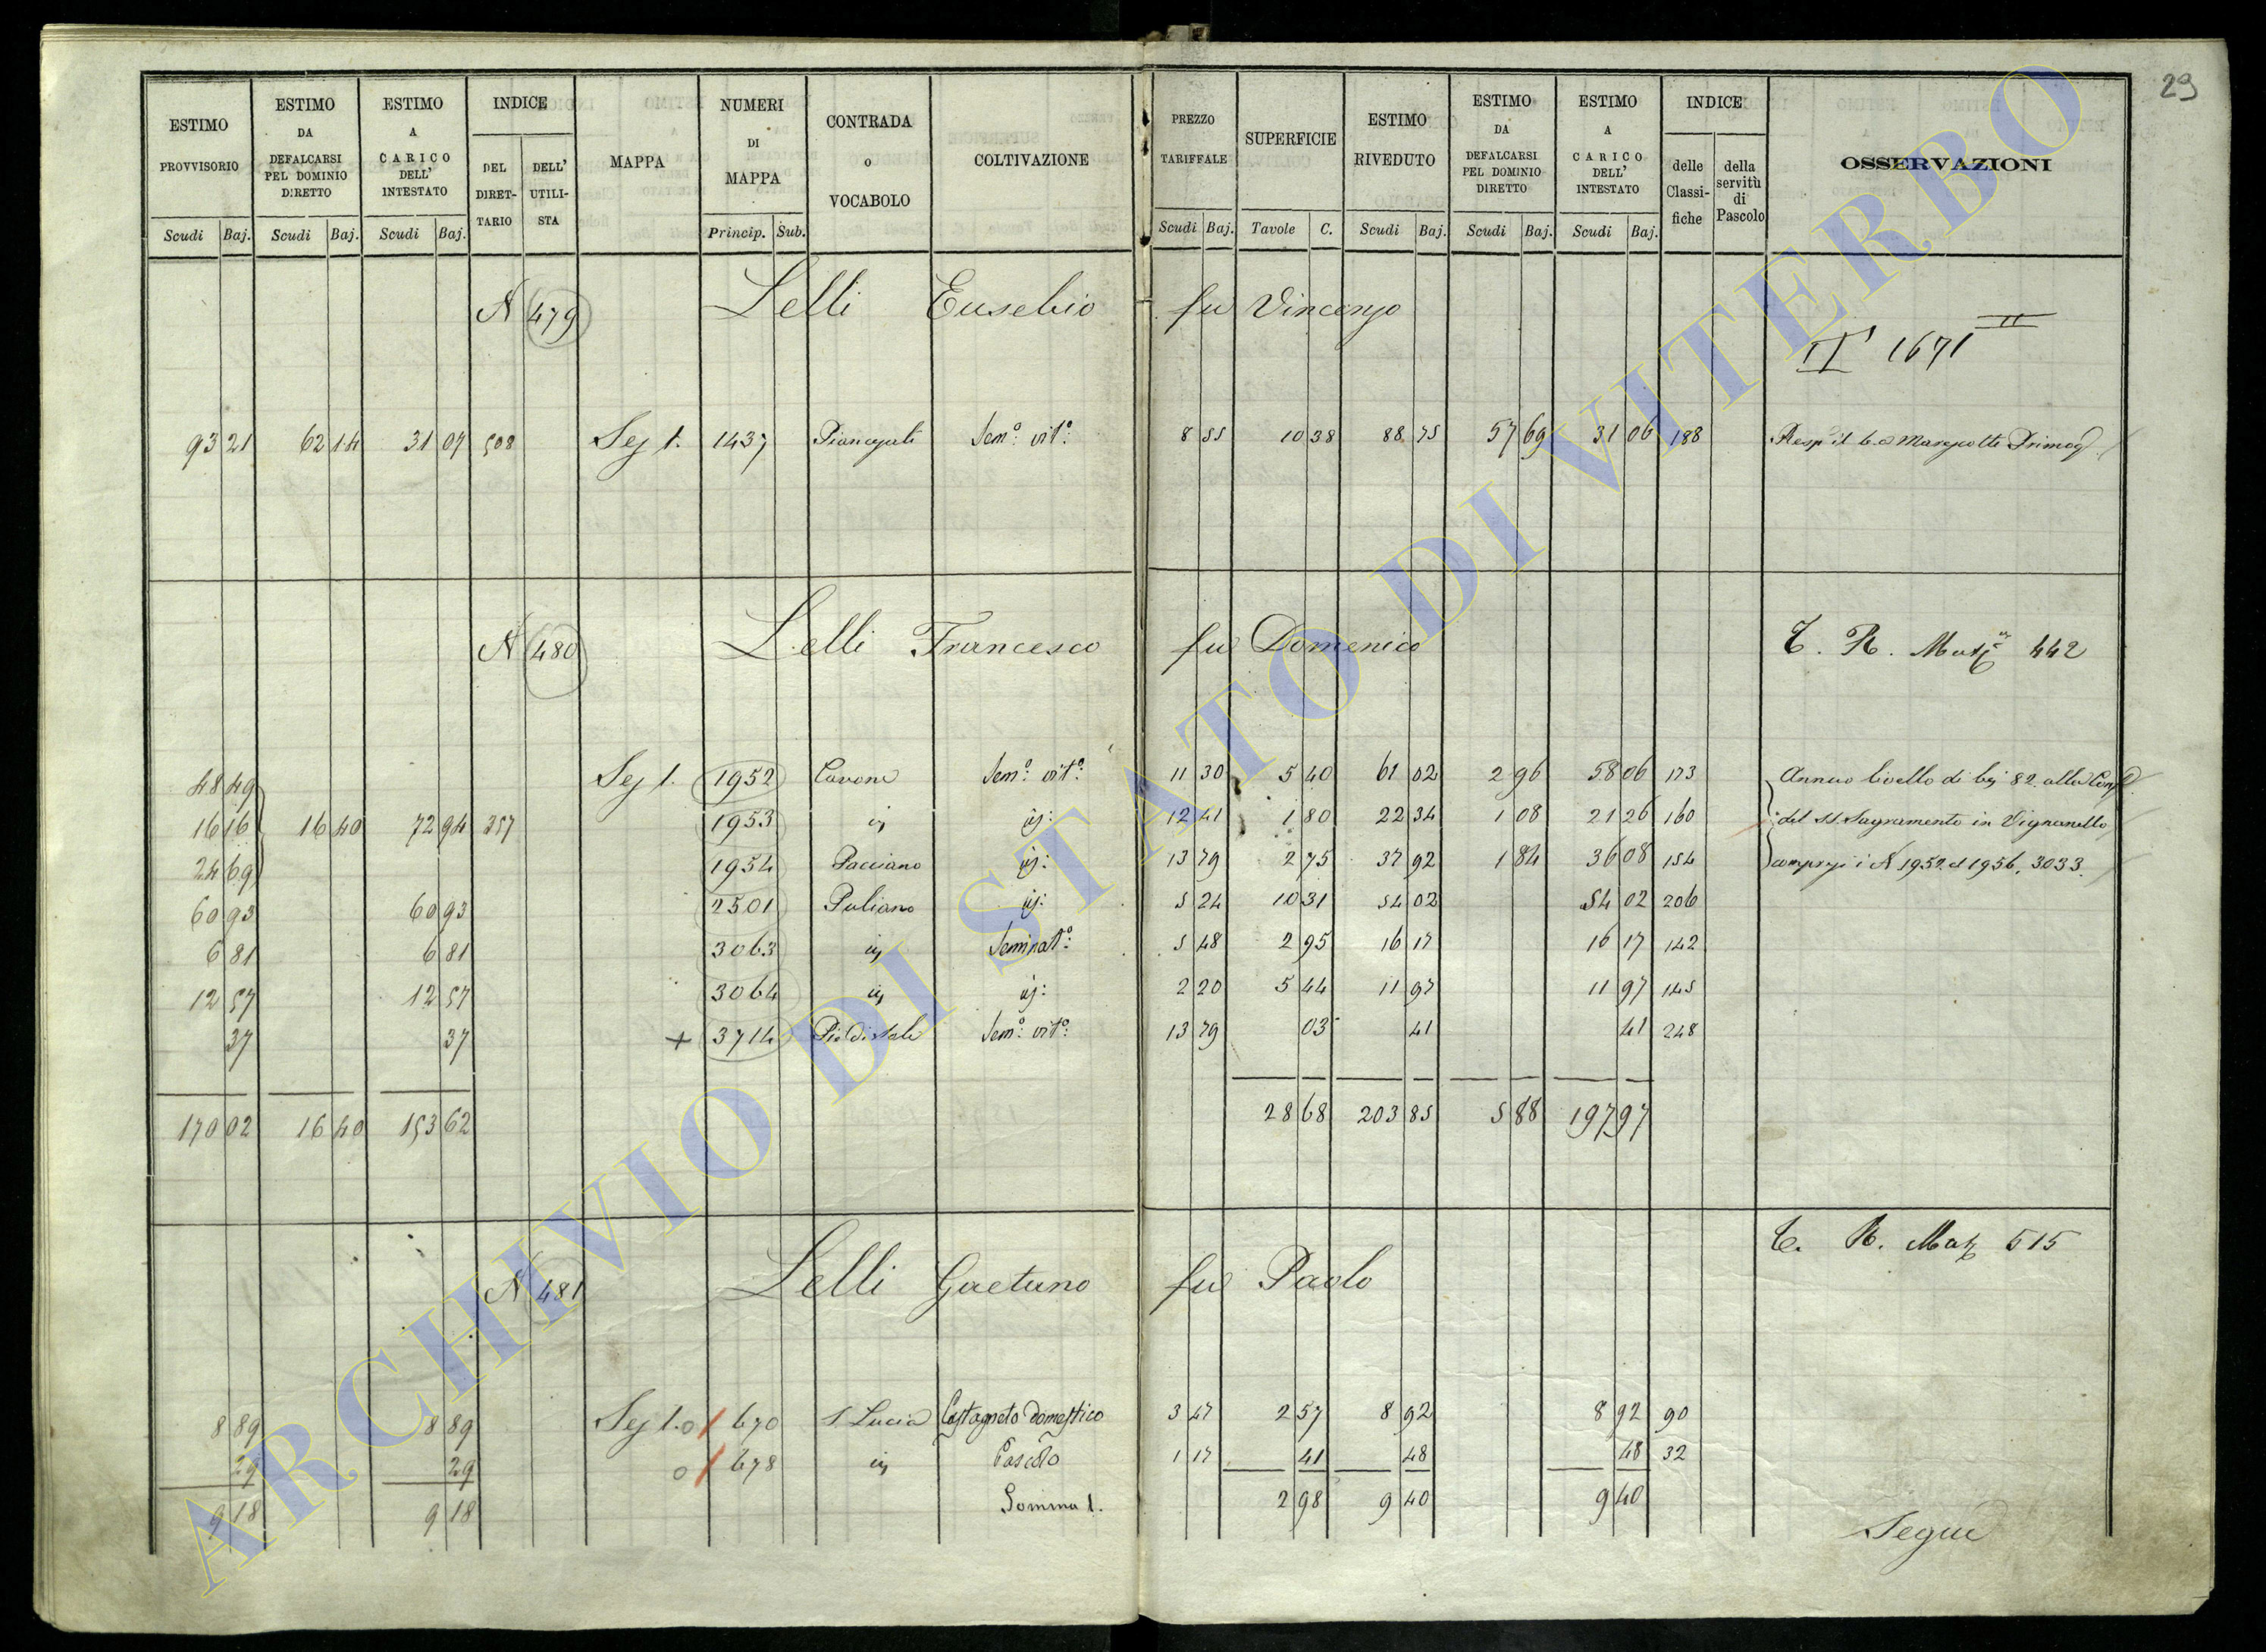 29
ESTIMO PROVVISORIO
ESTIMO DA DEFALCARSI PEL DOMINIO DIRETTO
ESTIMO A CARICO DELL' INTESTATO
INDICE
DEL DIRET-TARIO
DELL' UTILI-STA
MAPPA
NUMERI DI MAPPA
CONTRADA o VOCABOLO
COLTIVAZIONE
PREZZO TARIFFALE
SUPERFICIE
ESTIMO RIVEDUTO
ESTIMO DA DEFALCARSI PEL DOMINIO DIRETTO
ESTIMO A CARICO DELL' INTESTATO
INDICE
delle Classi-fiche
della servitù di Pascolo
OSSERVAZIONI
Scudi Baj. Scudi Baj. Scudi Baj. Princip. Sub. Scudi Baj. Tavole C. Scudi Baj. Scudi Baj. Scudi Baj.
N 479 Lelli Eusebio fu Vincenzo
1671
93 21 62 14 31 07 508 Sez 1. 1437 Sem.o vit.o 8 55 10 38 88 75 57 69 31 06 188
N 480 Lelli Francesco fu Domenico T. R. 442
48 49 Sez 1. 1952 Cavone Sem.o vit.o 11 30 5 40 61 02 2 96 58 06 173 Annuo livello di bj 82. alla
16 16 16 40 72 94 357 1953 12 41 1 80 22 34 1 08 21 26 160 del SS. Sagramento in Vignanello
24 69 1954 Pacciano 13 79 2 75 37 92 1 84 36 08 154 1952 al 1956, 3033.
60 93 60 93 2501 Puliano 5 24 10 31 54 02 54 02 206
6 81 6 81 3063 Seminat.o 5 48 2 95 16 17 16 17 142
12 57 12 57 3064 2 20 5 44 11 97 11 97 145
37 37 + 3714 Piè di Sale Sem.o vit.o 13 79 03 41 41 248
170 02 16 40 153 62 28 68 203 85 5 88 197 97
T. R. 515
N 481 Lelli Gaetano fu Paolo
8 89 8 89 Sez 1. 670 S. Lucia Castagneto domestico 3 47 2 57 8 92 8 92 90
29 29 678 Pascolo 1 17 41 48 48 32
9 18 9 18 Somma 1. 2 98 9 40 9 40
Segue
ARCHIVIO DI STATO DI VITERBO